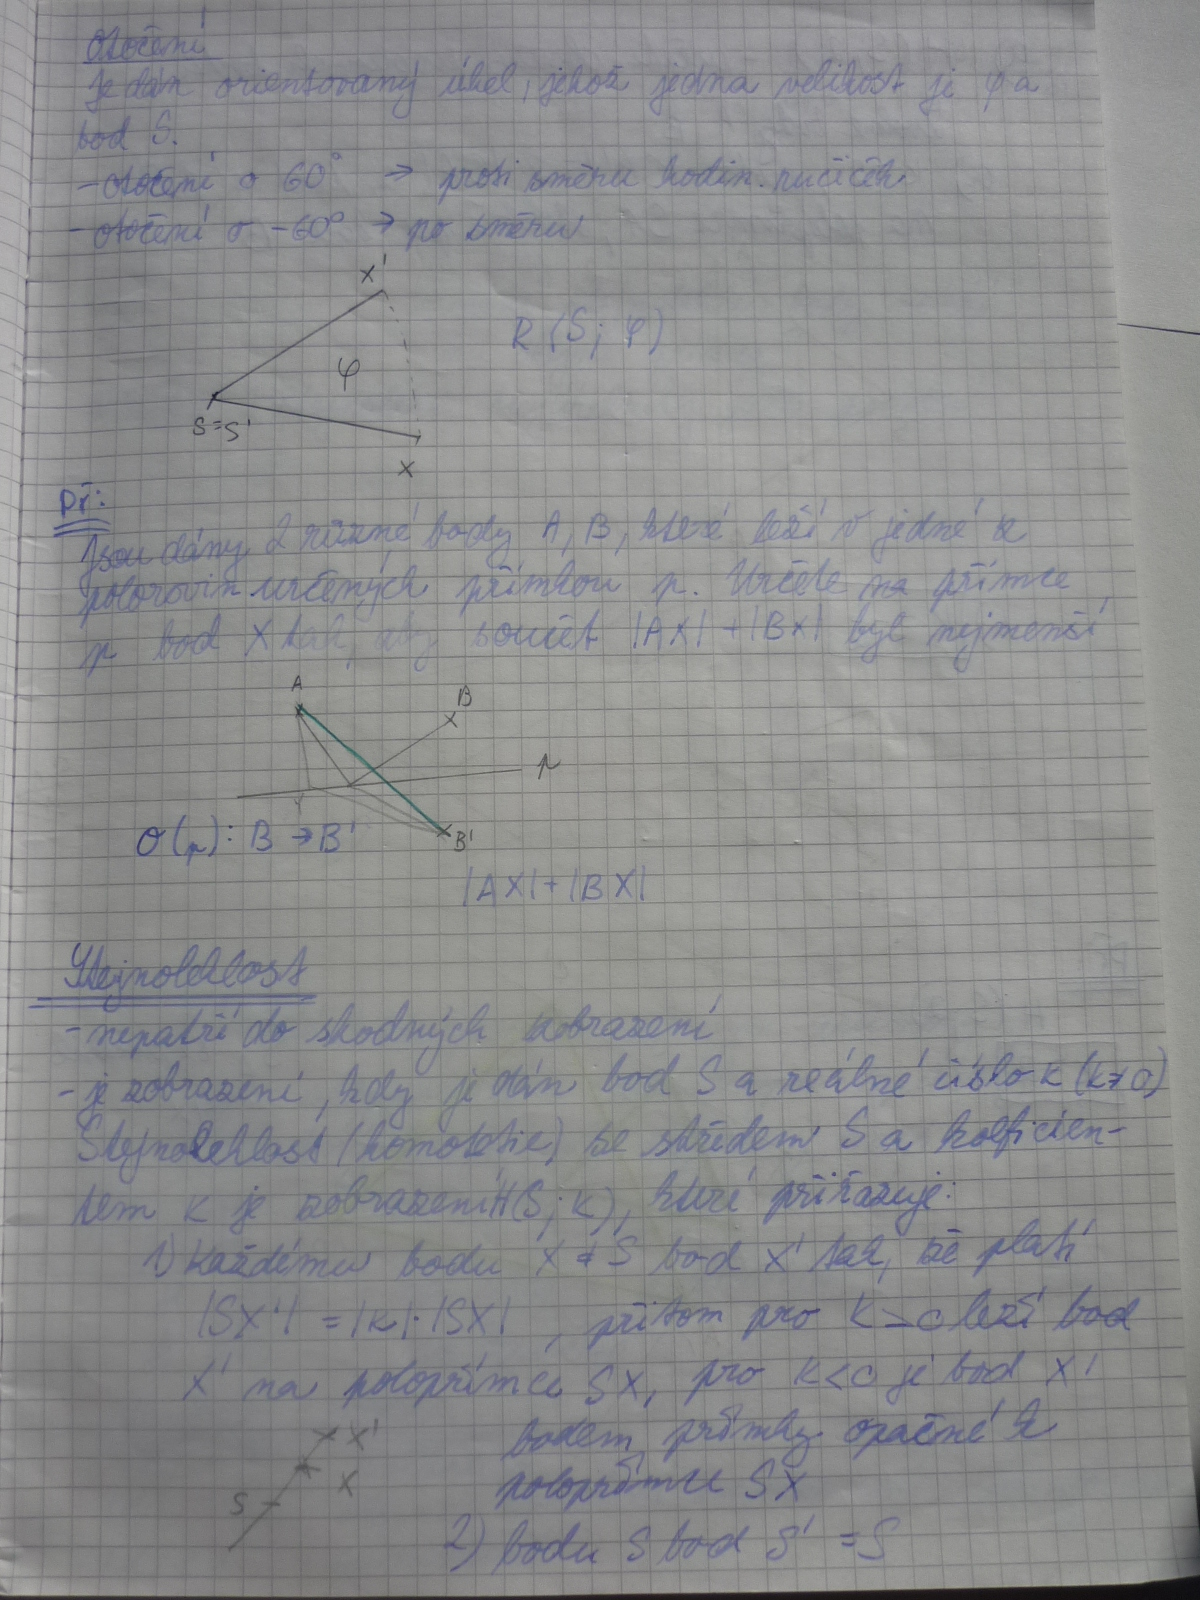 Otočení
Je dán orientovaný úhel, jehož jedna velikost je φ a
bod S.
- otočení o 60° → proti směru hodin. ručiček
- otočení o -60° → po směru
X'
R (S; φ)
φ
S=S'
X
Př:
Jsou dány 2 různé body A, B, které leží v jedné z
polorovin určených přímkou p. Určete na přímce
p bod X tak, aby součet |AX| + |BX| byl nejmenší
A
B
p
O(p): B → B'
B'
|AX| + |BX|
Stejnolehlost
- nepatří do shodných zobrazení
- je zobrazení, kdy je dán bod S a reálné číslo K (K≠0)
Stejnolehlost (homotetie) se středem S a koeficien-
tem K je zobrazení H(S; K), které přiřazuje:
1) Každému bodu X ≠ S bod X' tak, že platí
|SX'| = |K|·|SX| , přitom pro K>0 leží bod
X' na polopřímce SX, pro K<0 je bod X'
bodem přímky opačné k
polopřímce SX
X'
X
S
2) bodu S bod S' = S